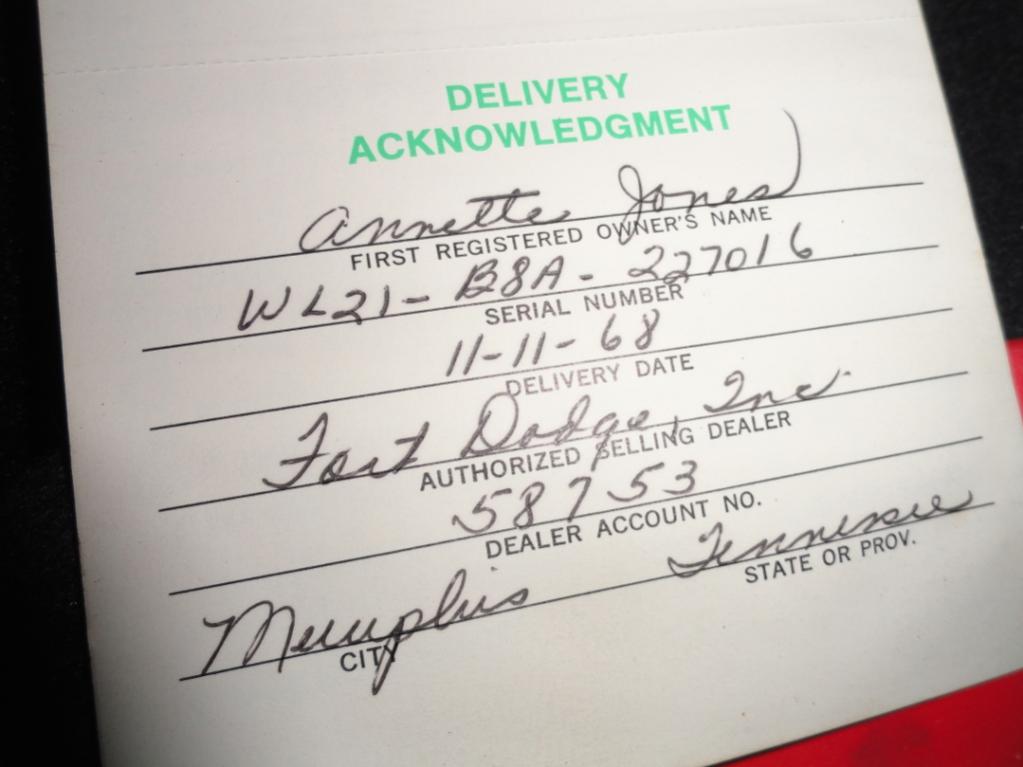 DELIVERY
ACKNOWLEDGMENT
Annette Jones
FIRST REGISTERED OWNER'S NAME
WL21-B8A-227016
SERIAL NUMBER
11-11-68
DELIVERY DATE
Fort Dodge, Inc.
AUTHORIZED SELLING DEALER
58753
DEALER ACCOUNT NO.
Memphis Tennessee
CITY STATE OR PROV.